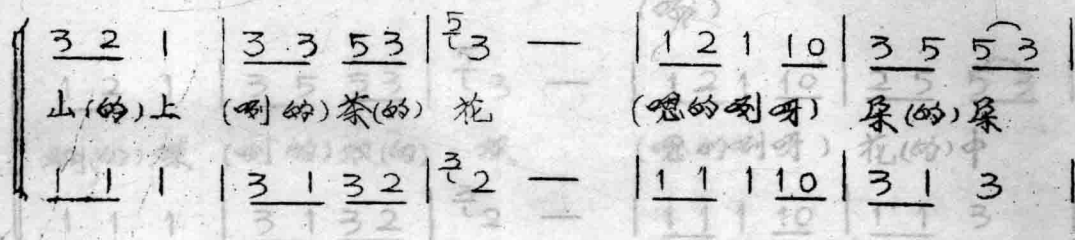 3 2 1 | 3 3 5 3 | 5 3 — | 1 2 1 1 0 | 3 5 5 3 |
山(的)上 (咧的)茶(的) 花 (嗯的咧呀) 朵(的)朵
1 1 1 | 3 1 3 2 | 3 2 — | 1 1 1 1 0 | 3 1 3 |